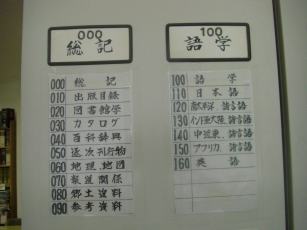 000
総記
000 総記
010 出版目録
020 図書館学
030 カタログ
040 百科辞典
050 逐次刊行物
060 地理、地図
070 報道関係
080 郷土資料
090 参考資料
100
語学
100 語学
110 日本語
130 インド亜大陸、諸言語
140 中近東、諸言語
150 アフリカ、諸言語
160 英語